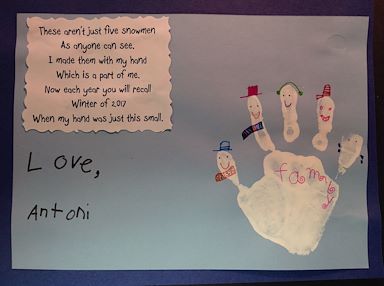 These aren't just five snowmen
As anyone can see.
I made them with my hand
Which is a part of me.
Now each year you will recall
Winter of 2017
When my hand was just this small.
Love,
Antoni
family